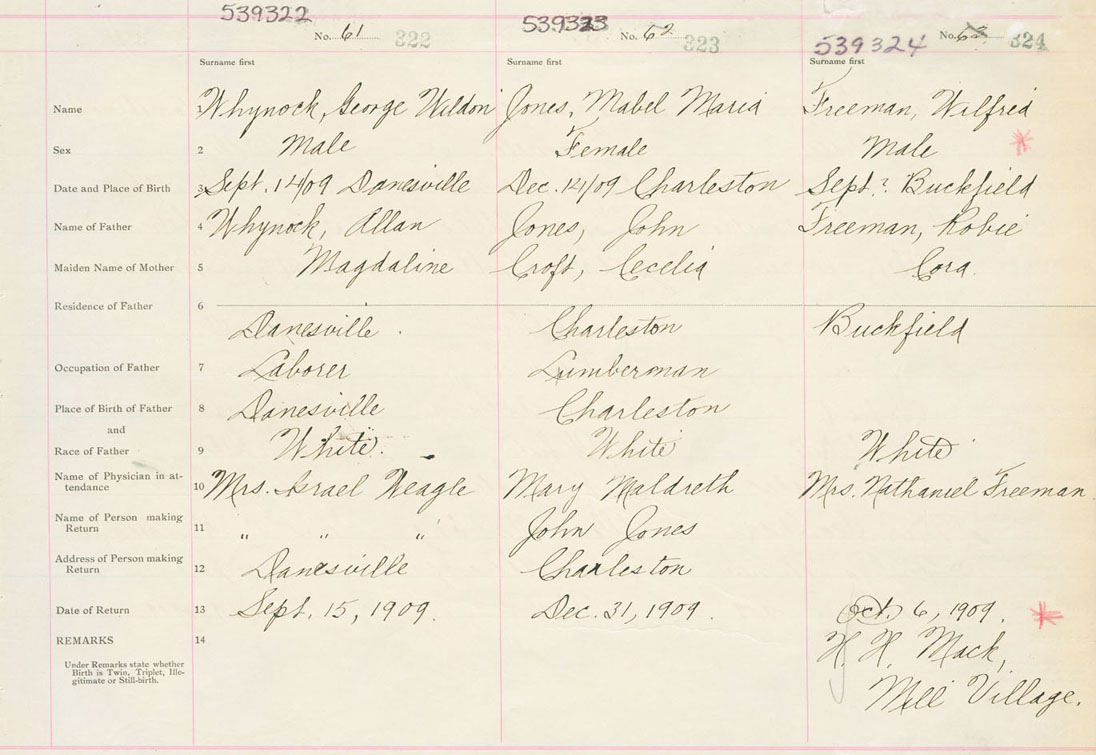 539322 539323 539324
No. 61 322 No. 62 323 No. 63 324
Surname first Surname first Surname first
Name 1 Whynock, George Weldon Jones, Mabel Maria Freeman, Wilfred
Sex 2 Male Female Male
Date and Place of Birth 3 Sept. 14/09 Danesville Dec. 14/09 Charleston Sept? Buckfield
Name of Father 4 Whynock, Allan Jones, John Freeman, Robie
Maiden Name of Mother 5 Magdaline Croft, Cecelia Cora.
Residence of Father 6
Danesville. Charleston Buckfield
Occupation of Father 7 Laborer Lumberman
Place of Birth of Father 8 Danesville Charleston
and
Race of Father 9 White. White White
Name of Physician in at-
tendance 10 Mrs. Israel Weagle Mary Maldreth Mrs. Nathaniel Freeman.
Name of Person making
Return 11 " " " John Jones
Address of Person making
Return 12 Danesville Charleston
Date of Return 13 Sept. 15, 1909. Dec. 31, 1909. Oct. 6, 1909.
REMARKS 14 H. H. Mack,
Under Remarks state whether
Birth is Twin, Triplet, Ille-
gitimate or Still-birth.
Mill Village.